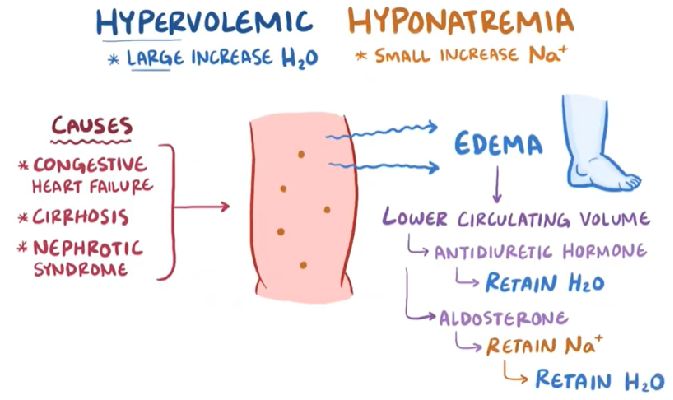 HYPERVOLEMIC HYPONATREMIA
* LARGE INCREASE H₂O * SMALL INCREASE Na⁺
CAUSES
* CONGESTIVE
HEART FAILURE
* CIRRHOSIS
* NEPHROTIC
SYNDROME
EDEMA
LOWER CIRCULATING VOLUME
ANTIDIURETIC HORMONE
RETAIN H₂O
ALDOSTERONE
RETAIN Na⁺
RETAIN H₂O